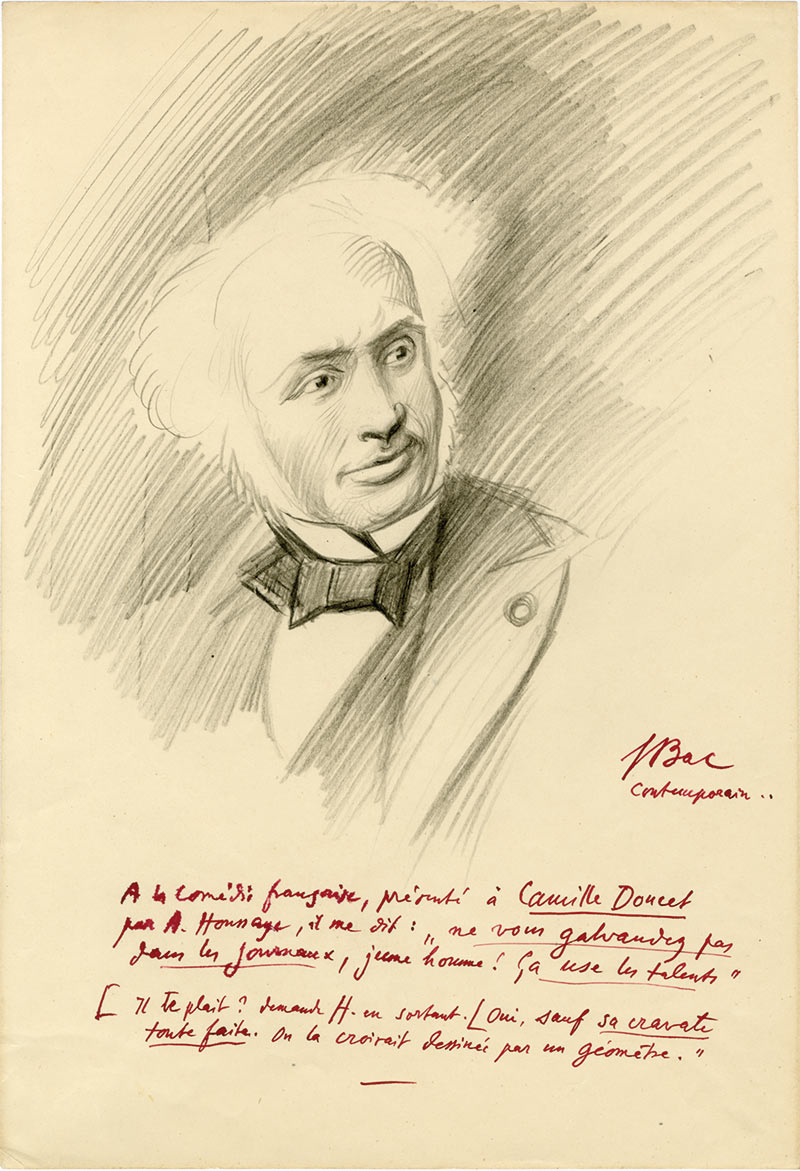 FBac
Contemporain ..
A la Comédie française, présenté à Camille Doucet
par A. Houssaye, il me dit : „ ne vous galvaudez pas
dans les journaux, jeune homme ! Ça use les talents ”
[ Il te plait ? demande H. en sortant. [ Oui, sauf sa cravate
toute faite. On la croirait dessinée par un géomètre. ”